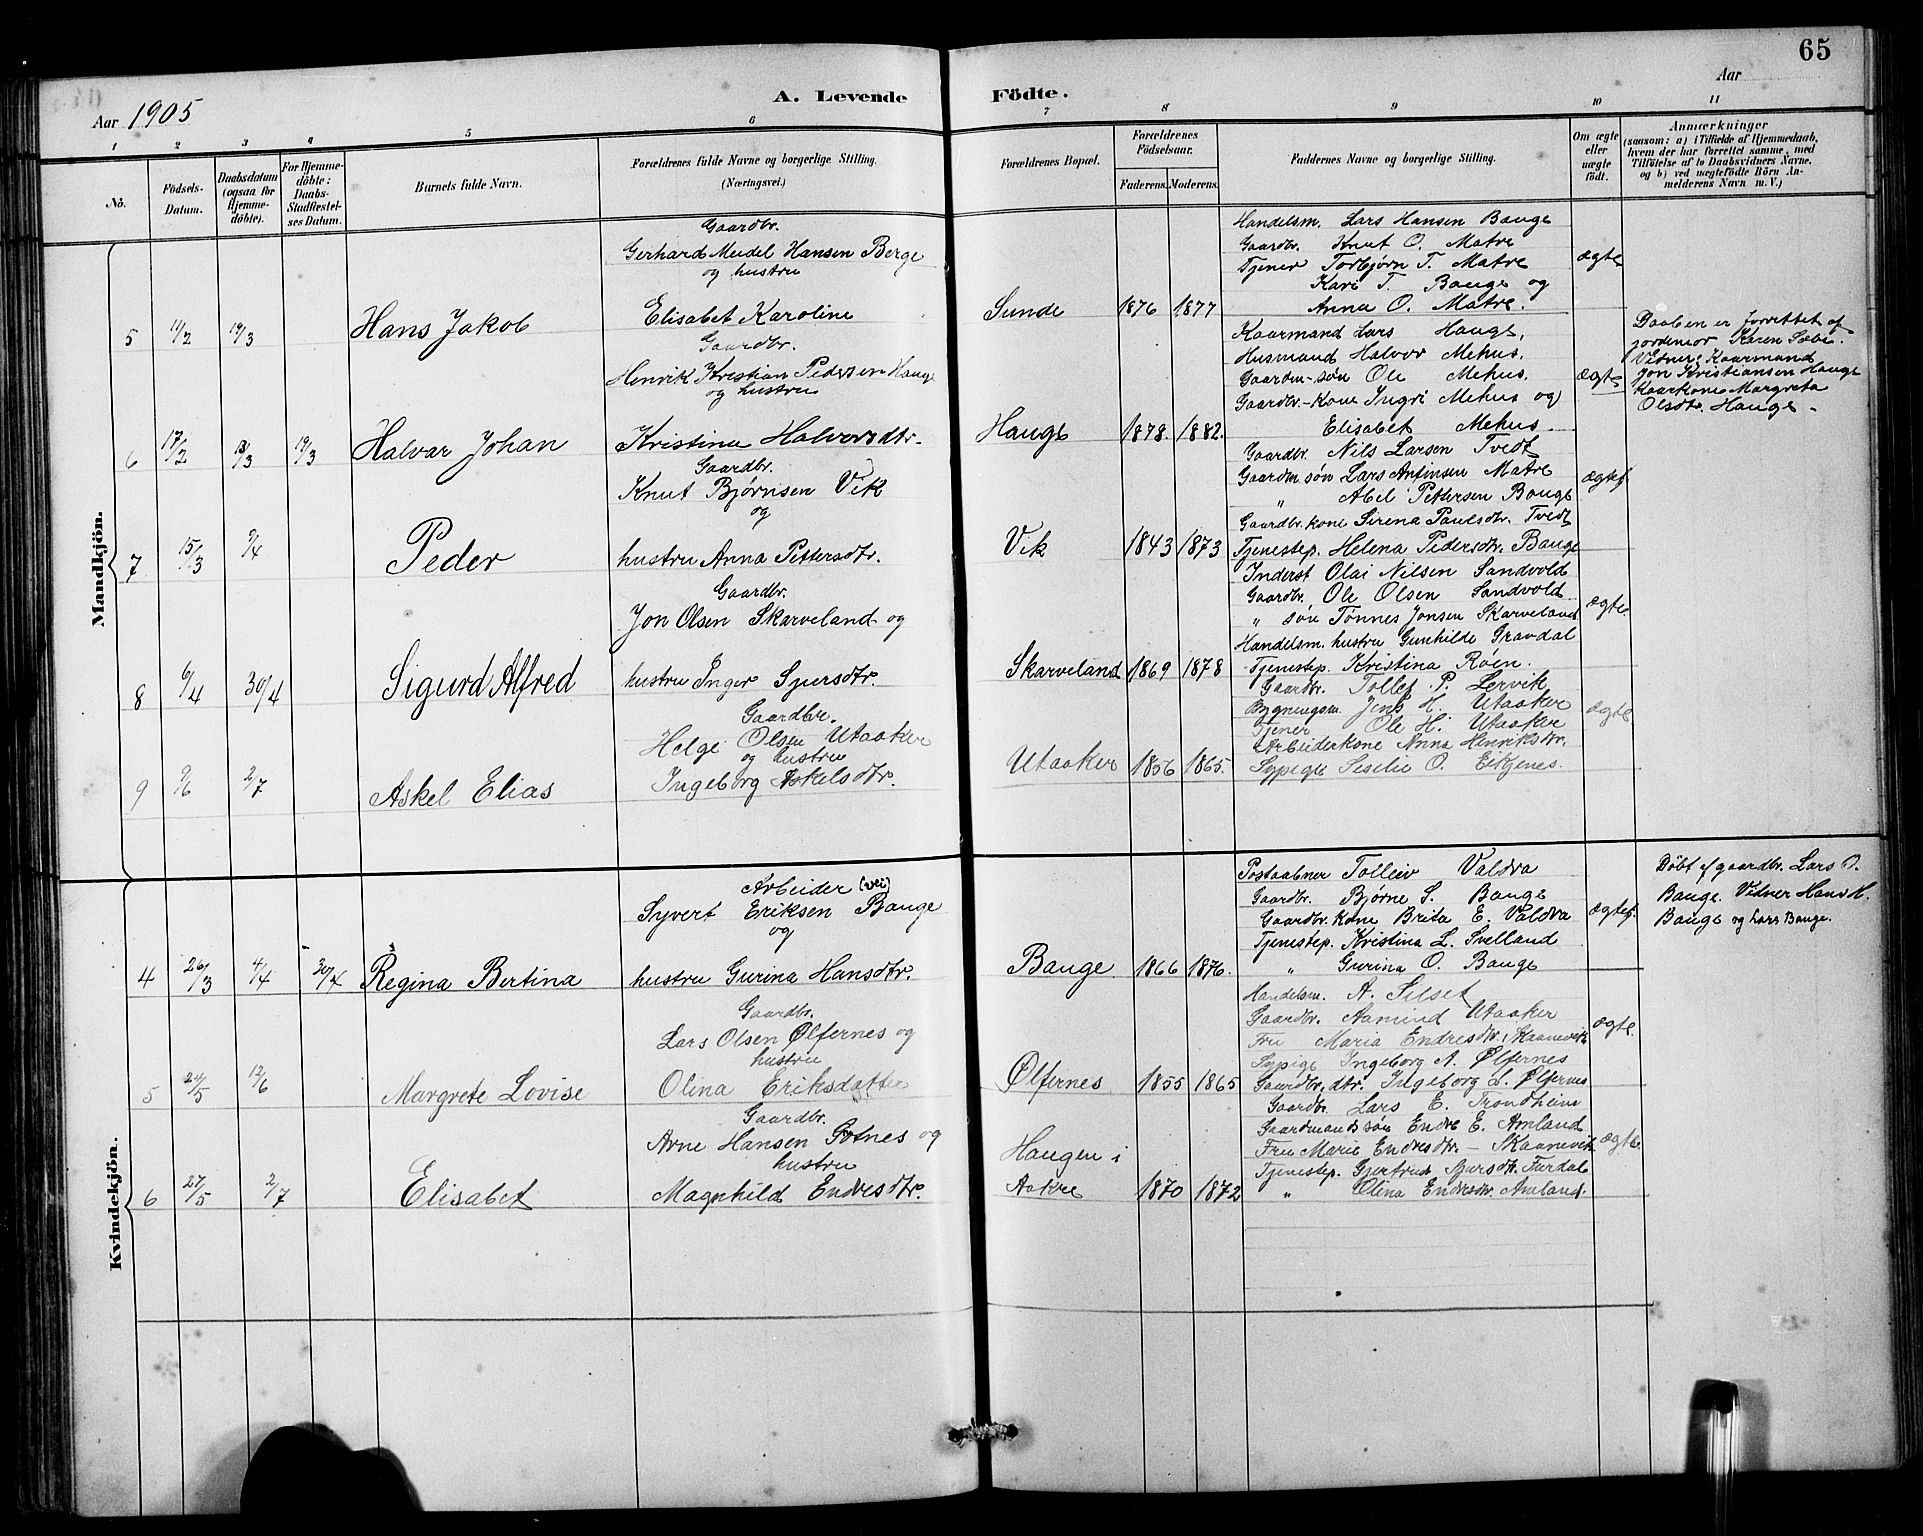 65
Aar 1905
A. Levende Födte.
Aar
1 2 3 4 5 6 7 8 9 10 11
No.
Födsels-Datum.
Daabsdatum (ogsaa for Hjemmedöbte).
For Hjemmedöbte: Daabs-Stadfæstelses Datum.
Barnets fulde Navn.
Forældrenes fulde Navne og borgerlige Stilling.
(Næringsvei.)
Forældrenes Bopæl.
Forældrenes Födselsaar.
Faderens. Moderens.
Faddernes Navne og borgerlige Stilling.
Om ægte eller uægte födt.
Anmærkninger
(saasom: a) i Tilfælde af Hjemmedaab,
hvem der har forrettet samme, med
Tilföielse af to Daabsvidners Navne,
og b) ved uægtefödte Börn An-
melderens Navn m. V.)
Mandkjön.
5 11/2 19/3 Hans Jakob
Gaardbr.
Gerhard Meidel Hansen Berge
og hustru
Elisabet Karoline
Sunde 1876 1877
Handelsm. Lars Hansen Bauge
Gaardbr. Knut O. Matre
Tjener Torbjørn T. Matre
Kari T. Bauge og
Anna O. Matre.
ægte
6 17/2 13/3 19/3 Halvar Johan
Gaardbr.
Henrik Kristian Pedersen Hauge
og hustru
Kristina Halvorsdtr.
Hauge 1878. 1882.
Kaarmand Lars Hauge,
Husmand Halvor Mehus.
Gaardm-søn Ole Mehus.
Gaardbr.-kone Ingri Mehus og
Elisabet Mehus.
ægte
Daaben er forrettet af
jordemor Karen Sæbø.
Vidner: Kaarmand
Jon Kristiansen Hauge
Kaarkone Margreta
Olsdtr. Hauge.
7 15/3 9/4 Peder
Gaardbr.
Knut Bjørnsen Vik
og
hustru Anna Pettersdtr.
Vik 1843 1873
Gaardbr. Nils Larsen Tvedt
Gaardm. søn Lars Antinsen Matre
" Abel Pettersen Bauge
Gaardbr. kone Sirena Paulsdtr. Tvedt
Tjenestep. Helena Pedersdtr. Bauge
ægtef
8 6/4 30/4 Sigurd Alfred
Gaardbr.
Jon Olsen Skarveland og
hustru Inger Sjursdtr.
Skarveland 1869 1878
Inderst Olai Nilsen Sandvold
Gaardbr. Ole Olsen Sandvold
" søn Tønnes Jonsen Skarveland
Handelsm. hustru Gunhilde Gravdal
Tjenestep. Kristina Røen.
ægte
9 9/6 2/7 Askel Elias
Gaardbr.
Helge Olsen Utaaker
og hustru
Ingeborg Askelsdtr.
Utaaker 1856 1865.
Gaardbr. Tollef P. Lervik
Bygningsm. Jens H. Utaaker
Tjener Ole H. Utaaker
Arbeiderkone Anna Henriksdtr.
Sypige Seselie O. Eikjenes.
ægte
Kvindekjön.
4 26/3 4/4 30/4 Regina Bertina
Arbeider (vei)
Syvert Eriksen Bauge
og
hustru Gurina Hansdtr.
Bauge 1866 1876.
Postaabner Tolleiv Valdra
Gaardbr. Bjørne S. Bauge
Gaardbr. Kone Brita E. Valdra
Tjenestep. Kristina L. Svelland
" Gurina O. Bauge
ægtef
Døbt af gaardbr. Lars O.
Bauge. Vidner Hans H.
Bauge og Lars Bauge.
5 24/5 12/6 Margrete Lovise
Gaardbr.
Lars Olsen Ølfernes og
hustru
Olina Eriksdatter
Ølfernes 1855 1865
Handelsm. A. Silset
Gaardbr. Aamund Utaaker
Fru Maria Endresdtr. Skaanevik
Sypige Ingeborg A. Ølfernes
Gaardbr. dtr. Ingeborg L. Ølfernes
ægte
6 27/5 2/7 Elisabet
Gaardbr.
Arne Hansen Fotnes og
hustru
Magnhild Endresdtr.
Haugen i
Aakre 1870 1872
Gaardbr. Lars E. Trondheim
Gaardmands søn Endre E. Amland
Fru Marie Endresdtr. - Skaanevik
Tjenestep. Gjertrud Sjursdtr. Furdal
" Olina Endresdtr. Amland.
ægte